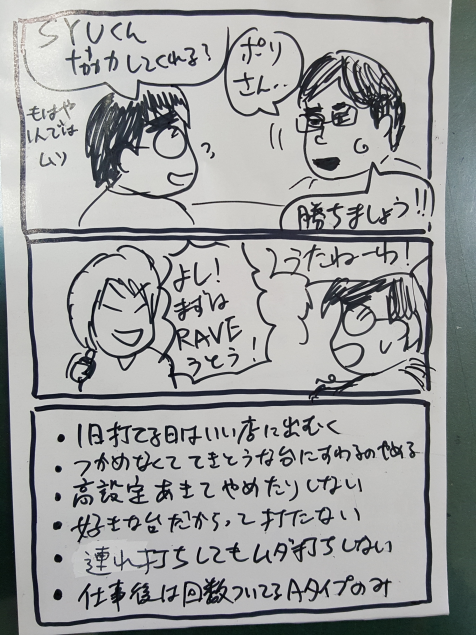 SYUくん
協力してくれる?
ポリ
さん..
もはや
1人では
ムリ
勝ちましょう!!
よし!
まずは
RAVE
うとう!
うたねーわ!
・1日打てる日はいい店に出むく
・つかめなくててきとうな台にすわるのやめる
・高設定あきてやめたりしない
・好きな台だからって打たない
・連れ打ちしてもムダ打ちしない
・仕事後は回数ついてるAタイプのみ